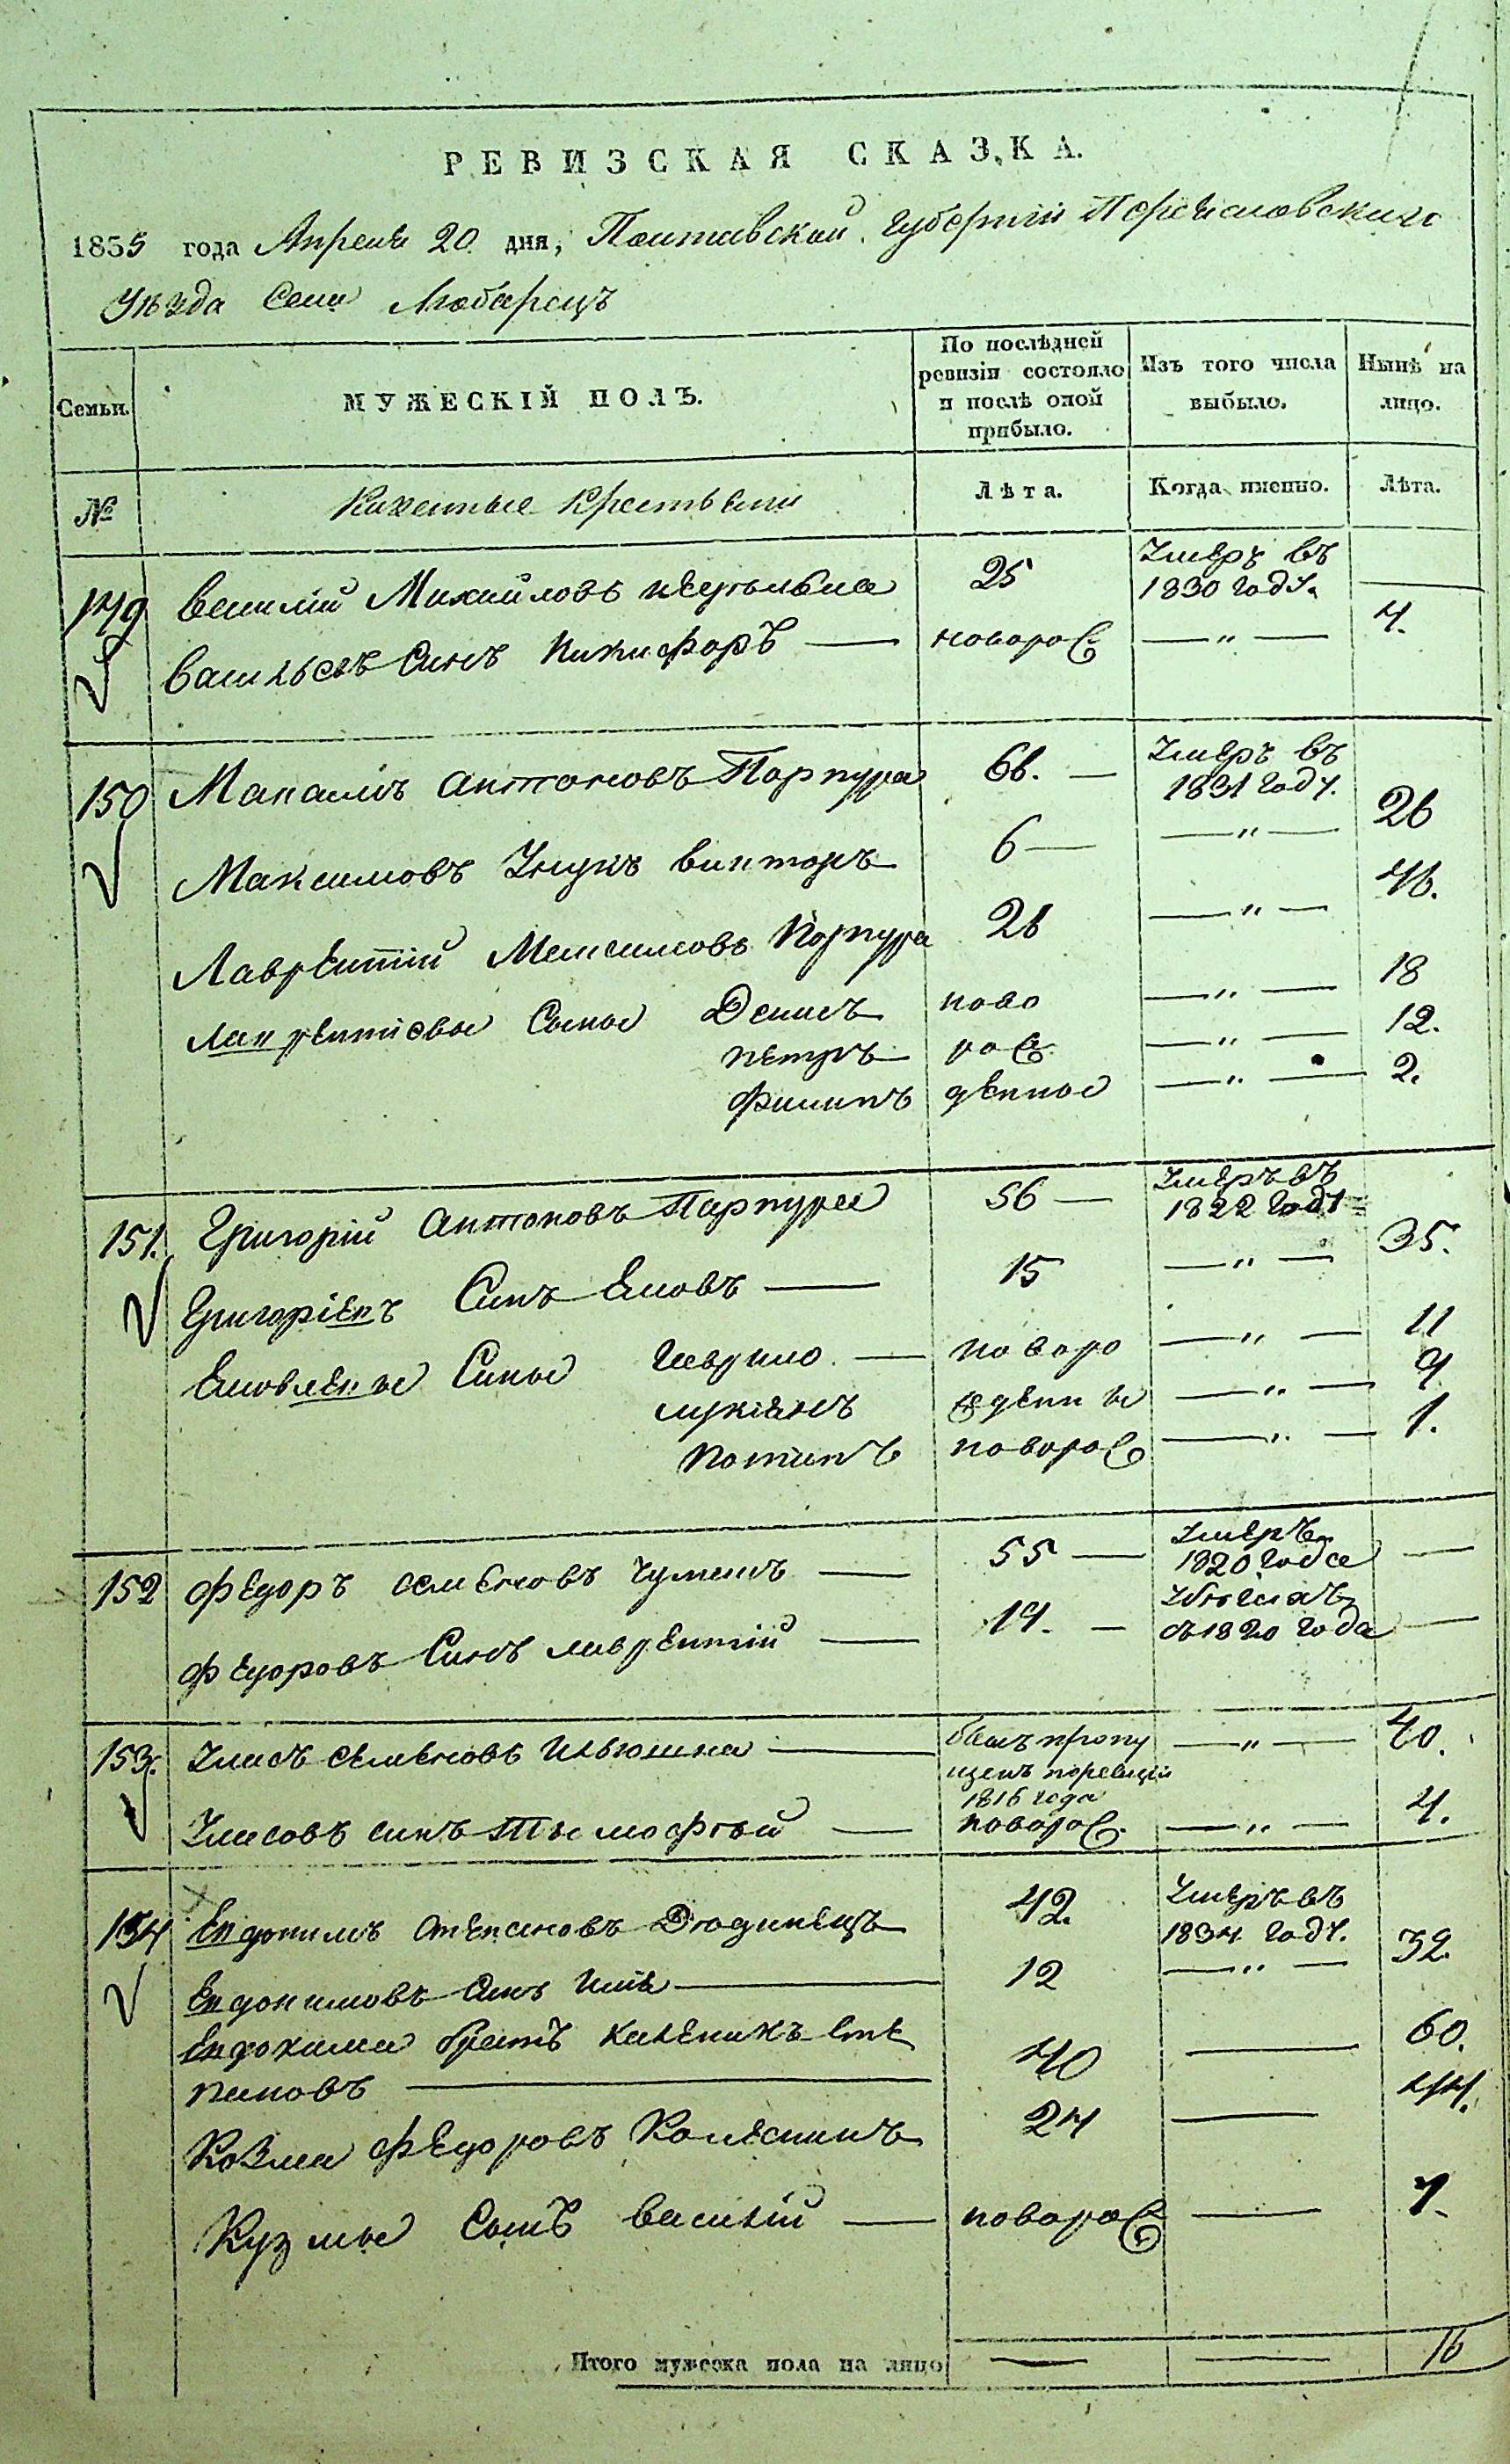 РЕВИЗСКАЯ СКАЗКА.
1835 года Апреля 20 дня, Полтавской Губерніи Переясловского
Уѣзда Села Любарецъ
Семьи. МУЖЕСКІЙ ПОЛЪ. По послѣдней ревизіи состояло и послѣ оной прибыло. Изъ того числа выбыло. Нынѣ на лицо.
№ Казенные Крестьяне Лѣта. Когда именно. Лѣта.
149 Василій Михайловъ 25 Умеръ въ 1830 году.
Васильевъ Синъ Никифоръ — поворо — " — 4.
150 Максимъ Антоновъ Парпура 66. — Умеръ въ 1831 году.
Максимовъ Унукъ Викторъ 6 — — " — 26
Лаврентій Максимовъ Парпура 26 — " — 46.
Лаврентіевы Сыны Денисъ ново — " — 18
Петръ ро — " — 12.
Филипъ денные — " — 2.
151. Григорій Антоновъ Парпура 56 — Умеръ въ 1822 году
Григоріевъ Синъ Яковъ — 15 — " — 35.
Яковлевы Сины Гаврило — новоро — " — 11
Лукіянъ денны — " — 9
Потапъ новоро — " — 1.
152 Федоръ Семеновъ Чумакъ — 55 — Умеръ 1820 года —
Федоровъ Синъ Лаврентій — 14. — съ 1820 года —
153. Власъ Семеновъ Ильюшка — былъ пропущенъ по ревизіи 1816 года — " — 40.
Власовъ синъ Тимофѣй — новоро — " — 4.
154 Евдокимъ Степановъ 42. Умеръ въ 1834 году.
Евдокимовъ Синъ Илія — 12 — " — 32
Евдокима братъ Каленикъ Сте
пановъ — 40 — 60.
Козма Федоровъ Колесникъ 24 — 44.
Кузмы Сынъ Василій — новоро —
Итого мужеска пола на лицо — — 16